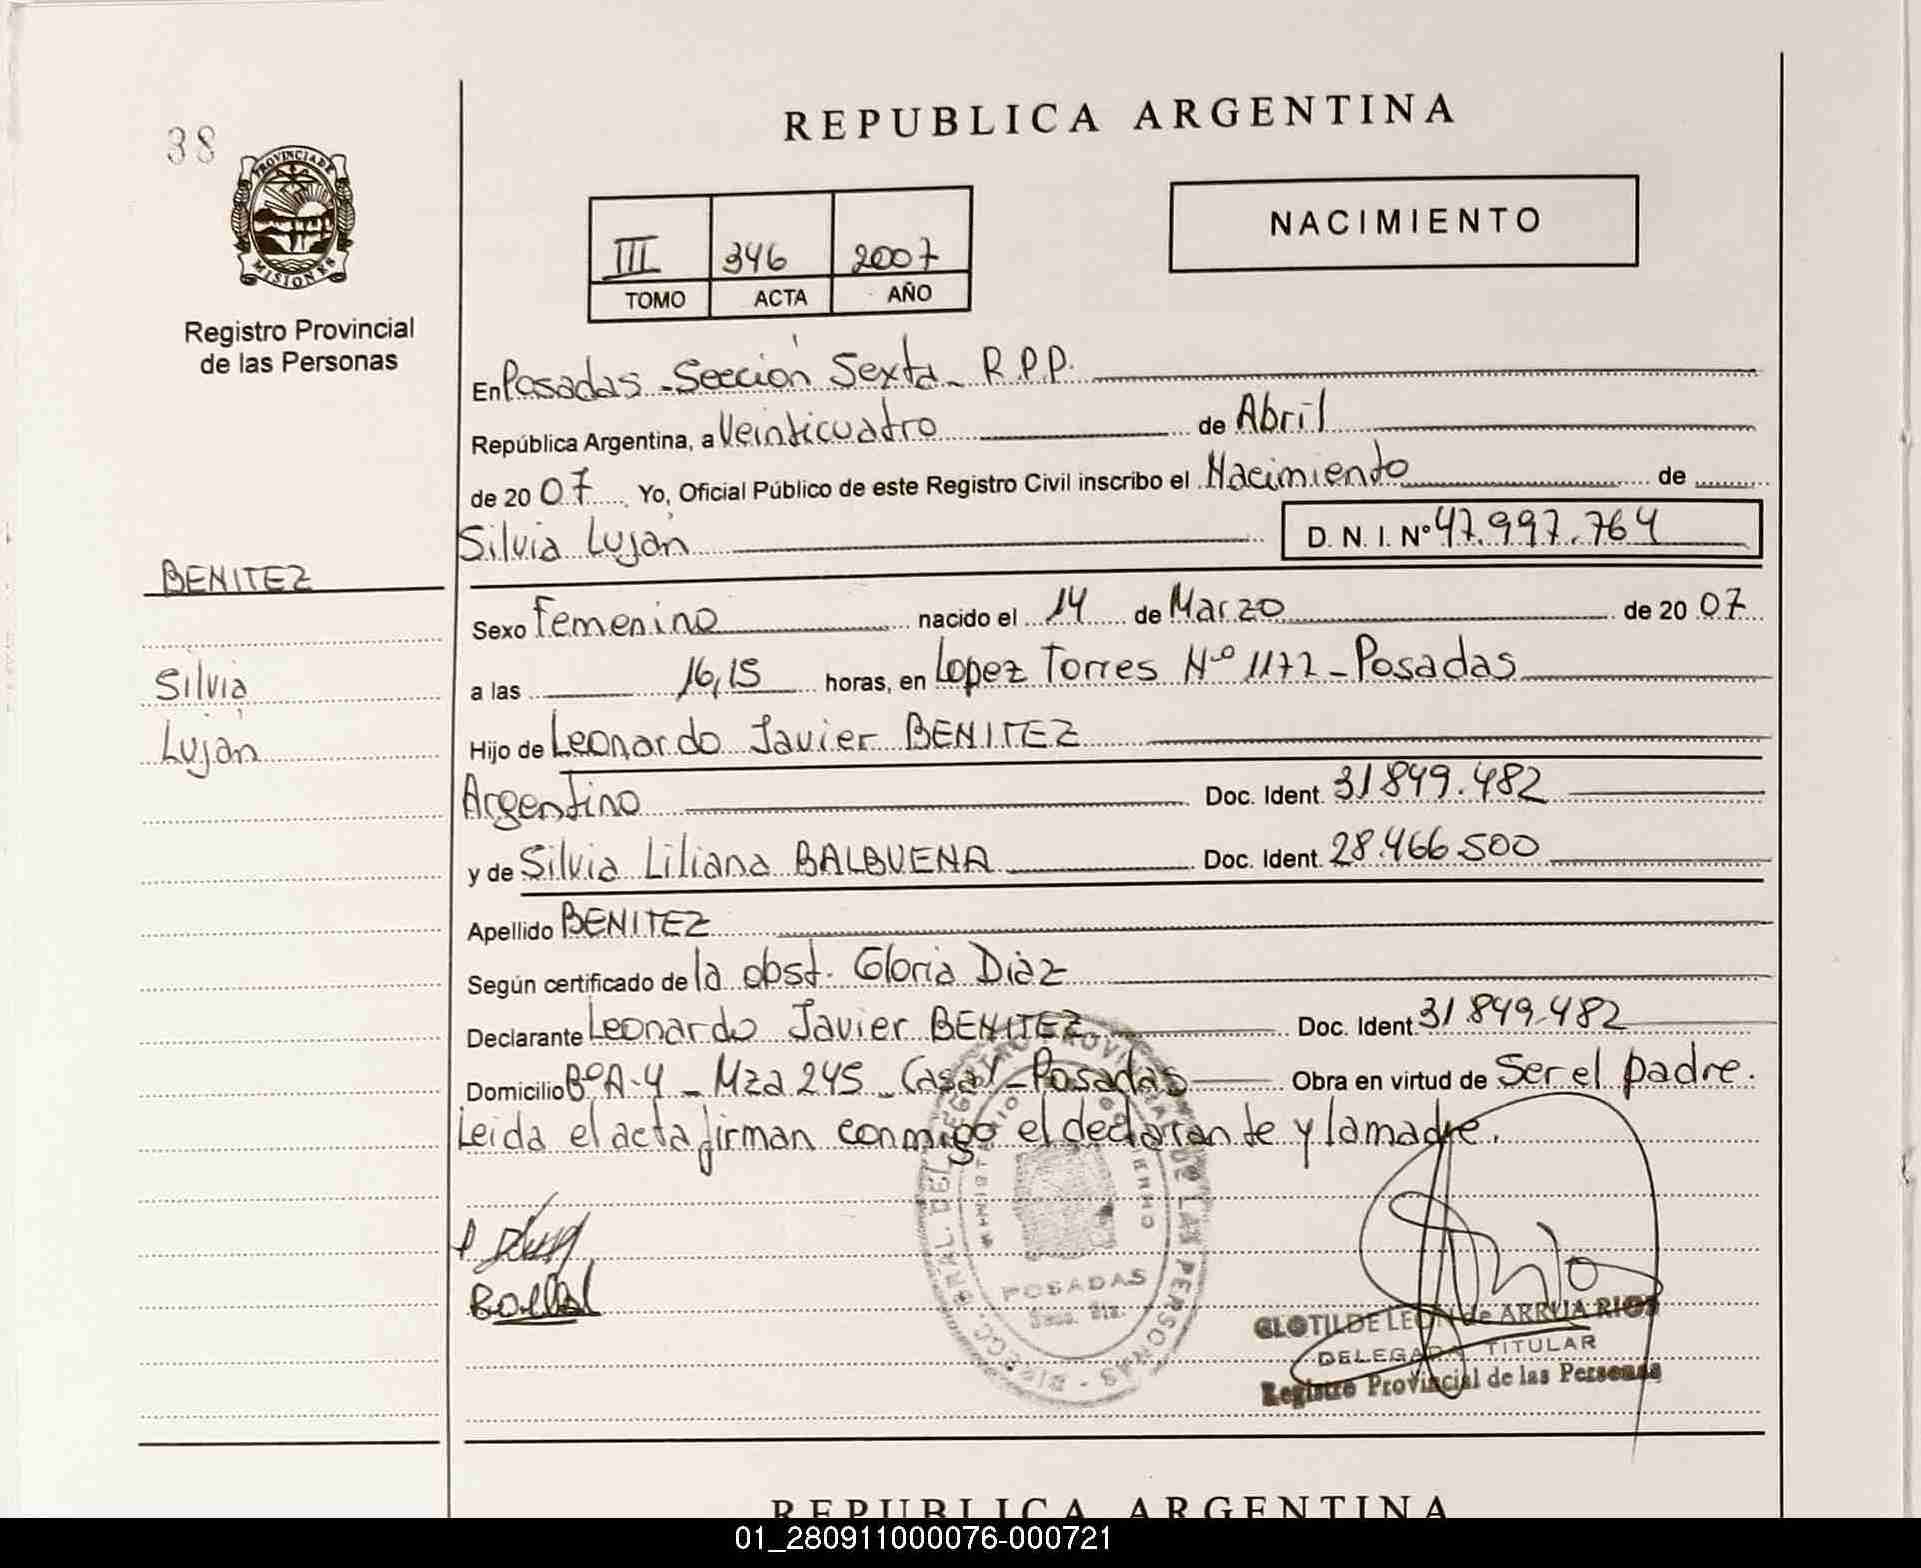 REPUBLICA ARGENTINA
38
PROVINCIA DE
MISIONES
NACIMIENTO
III 346 2007
TOMO ACTA AÑO
Registro Provincial
de las Personas
En Posadas - Sección Sexta - R.P.P.
República Argentina, a Veinticuatro de Abril
de 2007. Yo, Oficial Público de este Registro Civil inscribo el Nacimiento de
Silvia Luján D. N. I. Nº 47.997.764
BENITEZ
Sexo Femenino nacido el 14 de Marzo de 2007
Silvia
a las 16,15 horas, en Lopez Torres Nº 1172 - Posadas
Luján
Hijo de Leonardo Javier BENITEZ
Argentino Doc. Ident. 31849.482
y de Silvia Liliana BALBUENA Doc. Ident. 28.466.500
Apellido BENITEZ
Según certificado de la obst. Gloria Diàz
Declarante Leonardo Javier BENITEZ Doc. Ident. 31849.482
Domicilio Bº A-4 - Mza 245 - Casa - Posadas Obra en virtud de Ser el padre.
Leida el acta firman conmigo el declarante y la madre.
DIRECC. GRAL. DEL REGISTRO PROVINCIAL DE LAS PERSONAS
MINISTERIO DE GOBIERNO
POSADAS
Secc. 6ta.
CLOTILDE LEON de ARRUA RIOS
DELEGADA TITULAR
Registro Provincial de las Personas
REPUBLICA ARGENTINA
01_280911000076-000721